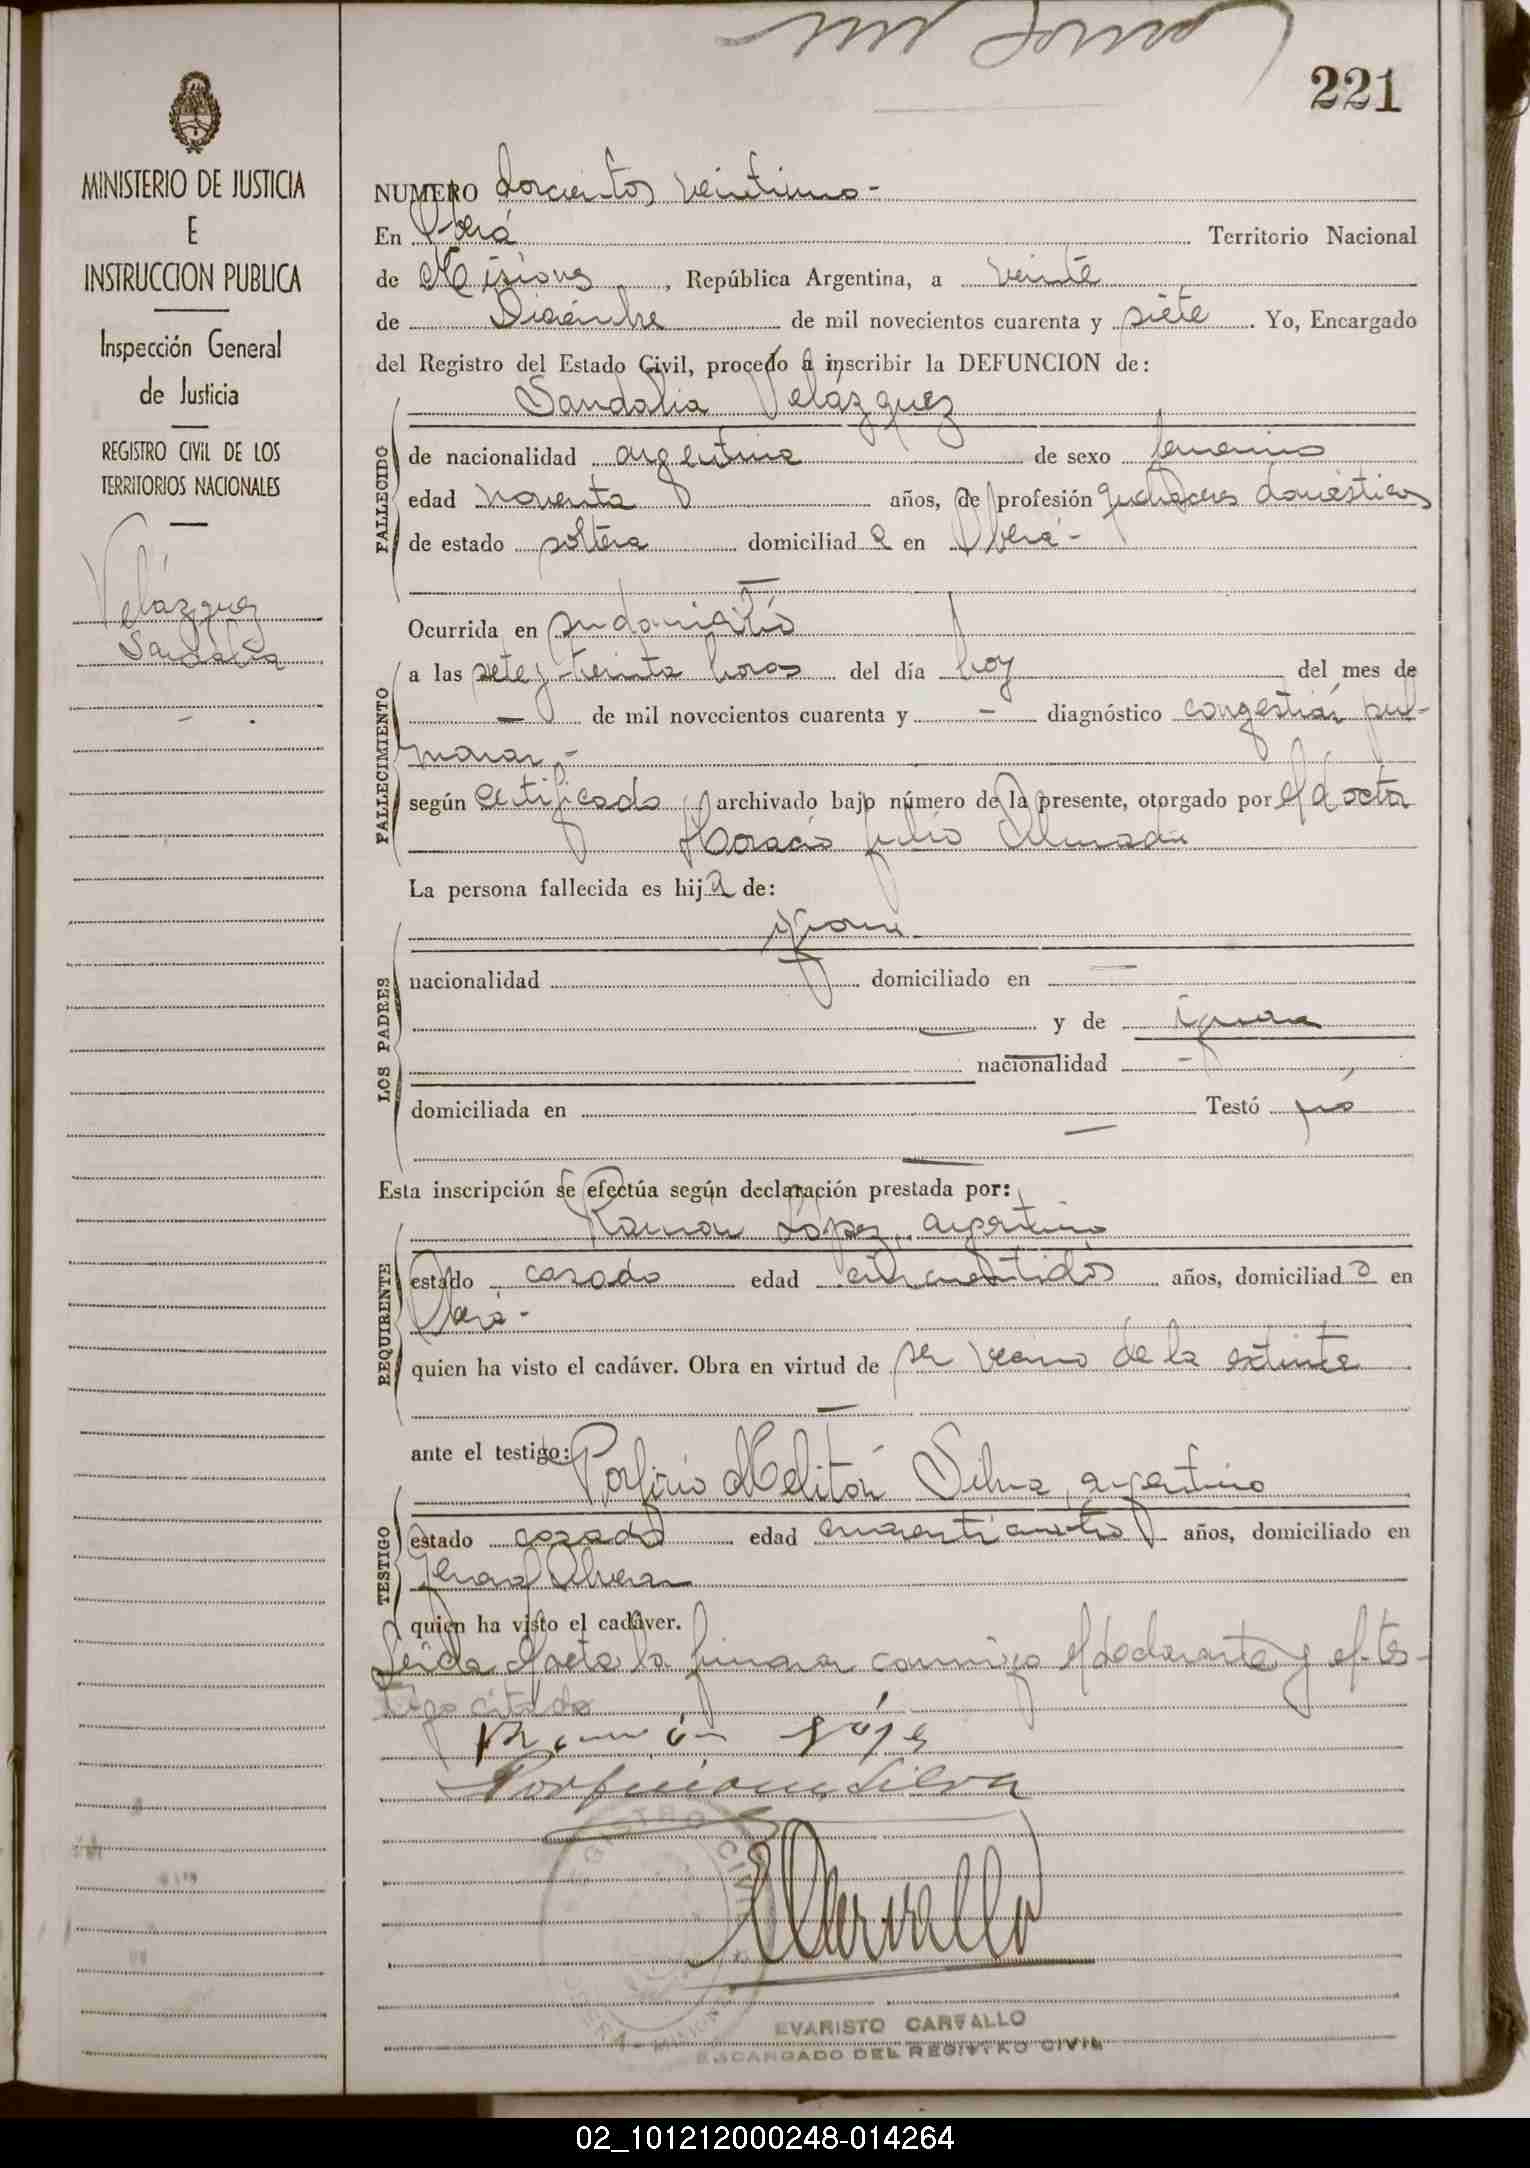 221
MINISTERIO DE JUSTICIA
E
INSTRUCCION PUBLICA
Inspección General
de Justicia
REGISTRO CIVIL DE LOS
TERRITORIOS NACIONALES
Velázquez
Sandalia
NUMERO doscientos veintiuno-
En Oberá Territorio Nacional
de Misiones, República Argentina, a veinte
de Diciembre de mil novecientos cuarenta y siete. Yo, Encargado
del Registro del Estado Civil, procedo a inscribir la DEFUNCION de:
FALLECIDO
Sandalia Velázquez
de nacionalidad argentina de sexo femenino
edad noventa años, de profesión quehaceres domésticos
de estado soltera domiciliad a en Oberá-
Ocurrida en su domicilio
FALLECIMIENTO
a las siete y treinta horas del día hoy del mes de
- de mil novecientos cuarenta y - diagnóstico congestión pul-
monar.-
según certificado archivado bajo número de la presente, otorgado por el doctor
Horacio Julio
La persona fallecida es hija de:
LOS PADRES
ignora
nacionalidad domiciliado en
y de ignora
nacionalidad -
domiciliada en Testó no
Esta inscripción se efectúa según declaración prestada por:
REQUIRENTE
Ramón López, argentino
estado casado edad cincuentidós años, domiciliado en
Oberá-
quien ha visto el cadáver. Obra en virtud de ser vecino de la extinta
ante el testigo:
TESTIGO
Porfirio Melitón Silva, argentino
estado casado edad cuarenticuatro años, domiciliado en
General Alvear
quien ha visto el cadáver.
Leída el acta la firman conmigo el declarante y el tes-
tigo citado
Ramón López
Porfirio M. Silva
REGISTRO CIVIL
OBERA - MISIONES
ECarvallo
EVARISTO CARVALLO
ENCARGADO DEL REGISTRO CIVIL
02_101212000248-014264